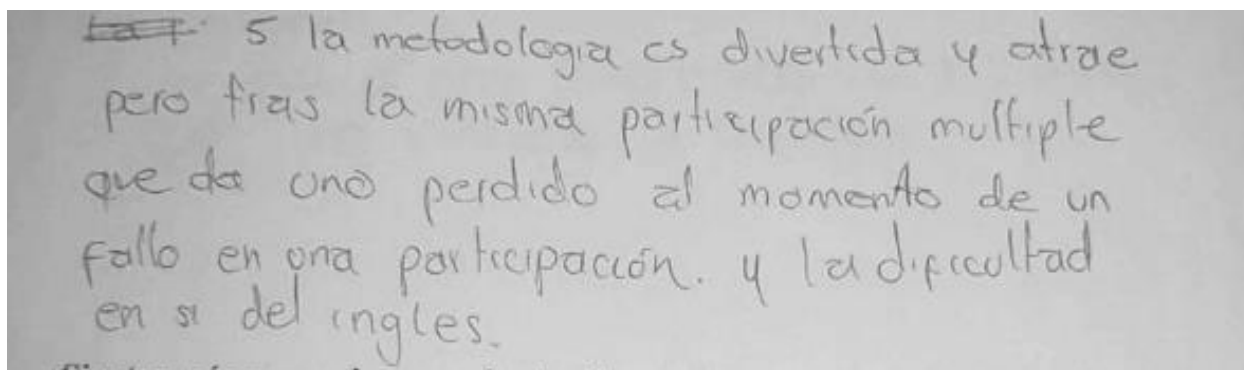 5 la metodologia es divertida y atrae
pero tras la misma participación multiple
que da uno perdido al momento de un
fallo en una participación. y la dificultad
en si del ingles.